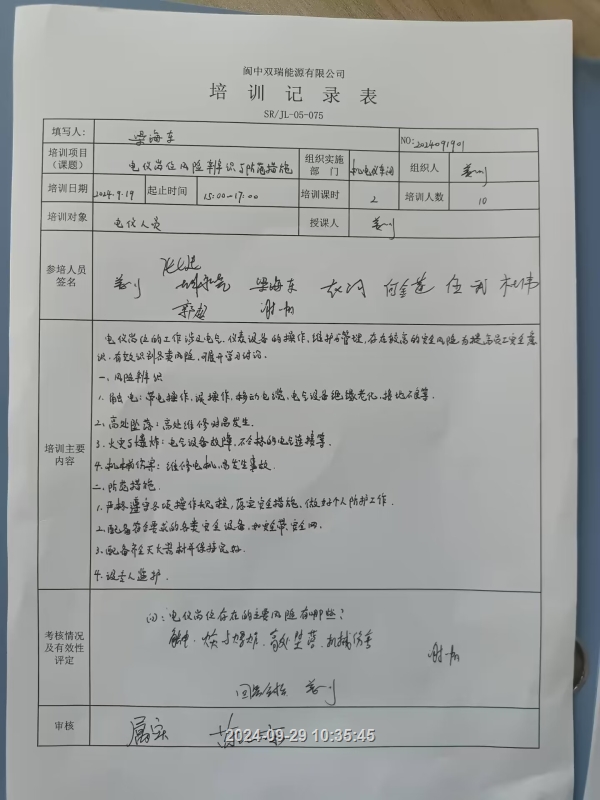 阆中双瑞能源有限公司
培训记录表
SR/JL-05-075
填写人: 梁海东 NO:2024091901
培训项目(课题) 电仪岗位风险辨识与防范措施 组织实施部门 机电仪车间 组织人 姜川
培训日期 2024.9.19 起止时间 15:00-17:00 培训课时 2 培训人数 10
培训对象 电仪人员 授课人 姜川
参培人员签名
姜川 梁海东 伍 杜伟
谢
培训主要内容
电仪岗位的工作涉及电气、仪表设备的操作、维护与管理,存在较高的安全风险,为提高员工安全意
识,有效识别各类风险,开展学习讨论.
一、风险辨识
1.触电:带电操作,误操作,移动电缆,电气设备绝缘老化,接地不良等.
2.高处坠落:高处维修时易发生.
3.火灾与爆炸:电气设备故障,不合格的电气连接等.
4.机械伤害:维修电机,易发生事故.
二.防范措施.
1.严格遵守各项操作规程,落实安全措施,做好个人防护工作.
2.配备符合要求的各类安全设备,如安全带,安全网.
3.配备齐全灭火器材并保持完好.
4.设专人监护.
考核情况及有效性评定
问:电仪岗位存在的主要风险有哪些?
触电、火灾与爆炸、高处坠落、机械伤害
谢
回答合格 姜川
审核 属实
2024-09-29 10:35:45